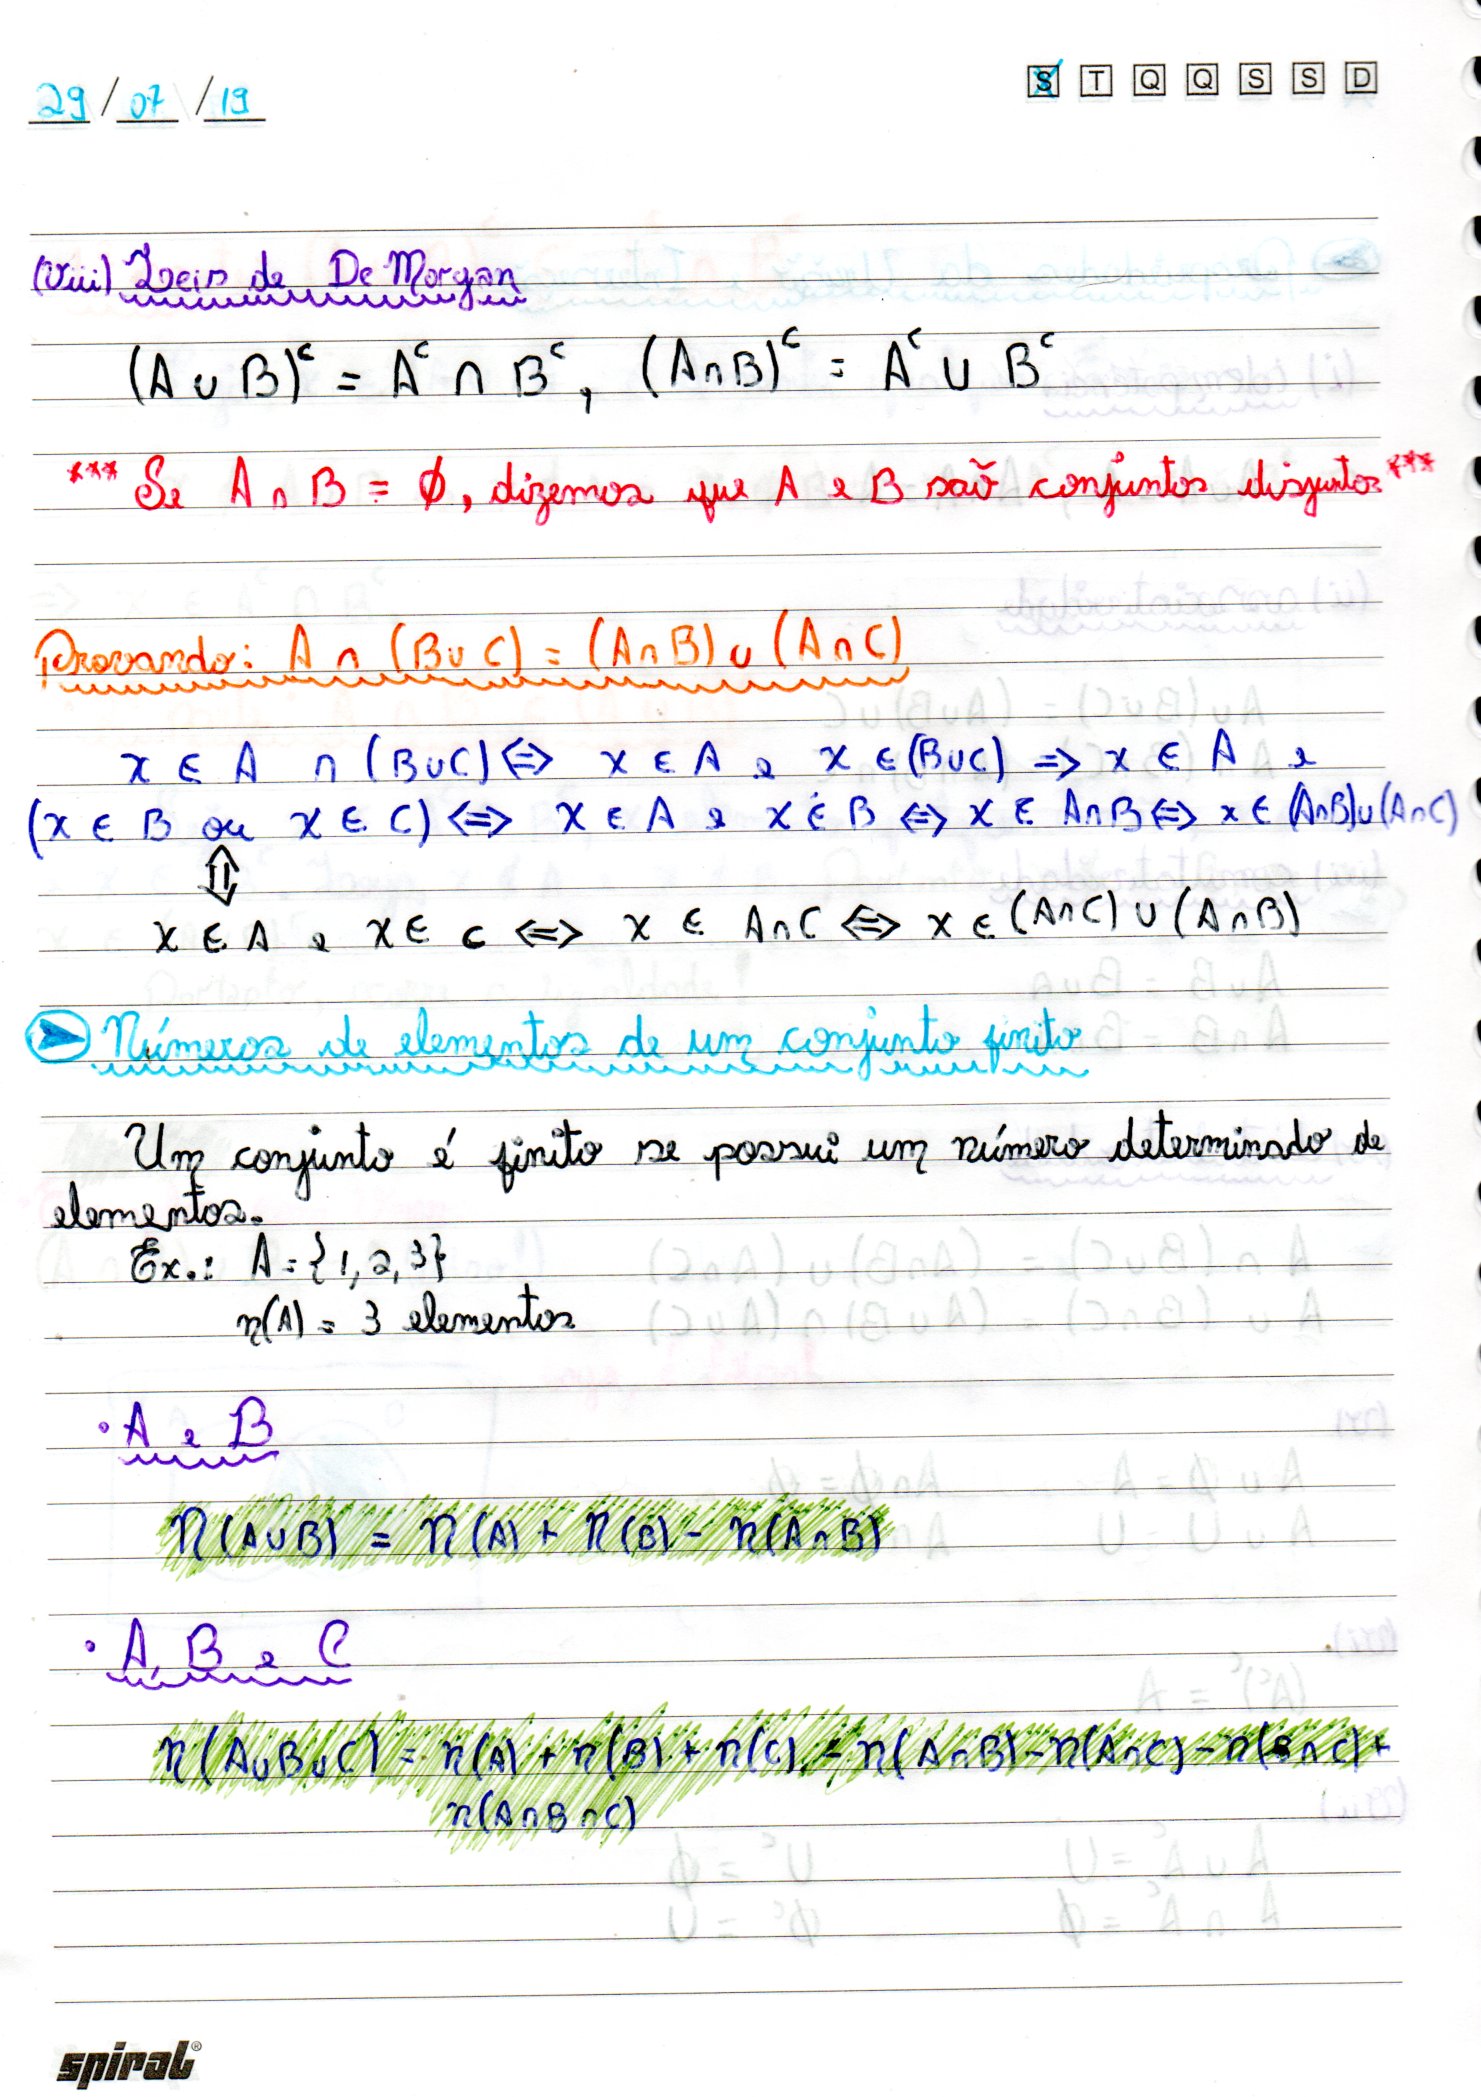 29/07/19 S T Q Q S S D
(viii) Leis de De Morgan
(A ∪ B)ᶜ = Aᶜ ∩ Bᶜ, (A∩B)ᶜ = Aᶜ ∪ Bᶜ
*** Se A ∩ B = ∅, dizemos que A e B são conjuntos disjuntos ***
Provando: A ∩ (B∪C) = (A∩B) ∪ (A∩C)
x ∈ A ∩ (B∪C) ⇔ x ∈ A e x ∈ (B∪C) ⇒ x ∈ A e
(x ∈ B ou x ∈ C) ⇔ x ∈ A e x ∈ B ⇔ x ∈ A∩B ⇔ x ∈ (A∩B)∪(A∩C)
⇕
x ∈ A e x ∈ C ⇔ x ∈ A∩C ⇔ x ∈ (A∩C) ∪ (A∩B)
➤ Números de elementos de um conjunto finito
Um conjunto é finito se possui um número determinado de
elementos.
Ex.: A = {1, 2, 3}
n(A) = 3 elementos
• A e B
n(A∪B) = n(A) + n(B) - n(A∩B)
• A, B e C
n(A∪B∪C) = n(A) + n(B) + n(C) - n(A∩B) - n(A∩C) - n(B∩C) +
n(A∩B∩C)
spiral®